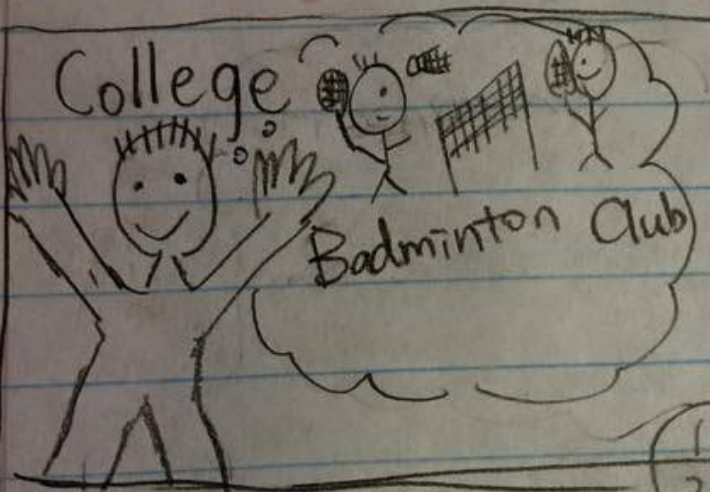 College
Badminton Club
1
2